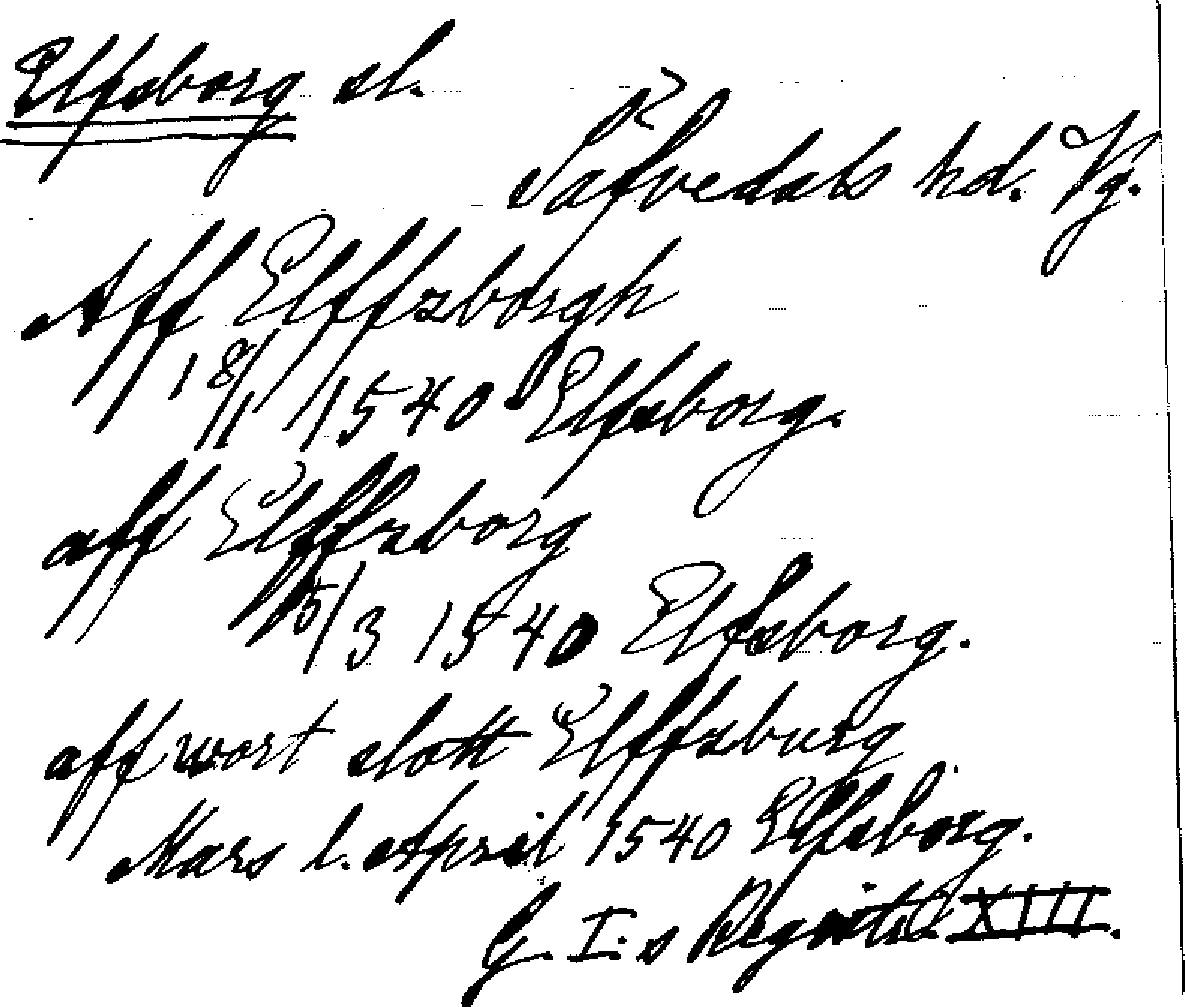 Elfsborg sl.
Säfvedals hd. Vg.
Aff Elffzborgh
18/1 1540 Elfsborg.
aff Elffzborg
15/3 1540 Elfsborg.
aff wort slott Elffzburg
Mars l. April 1540 Elfsborg.
G. I:s Registr. XIII.